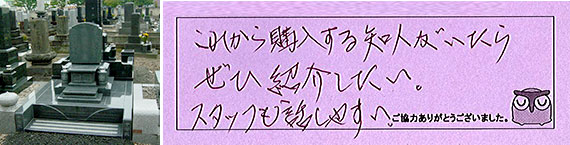 これから購入する知人がいたら
ぜひ紹介したい。
スタッフも話しやすい。
ご協力ありがとうございました。